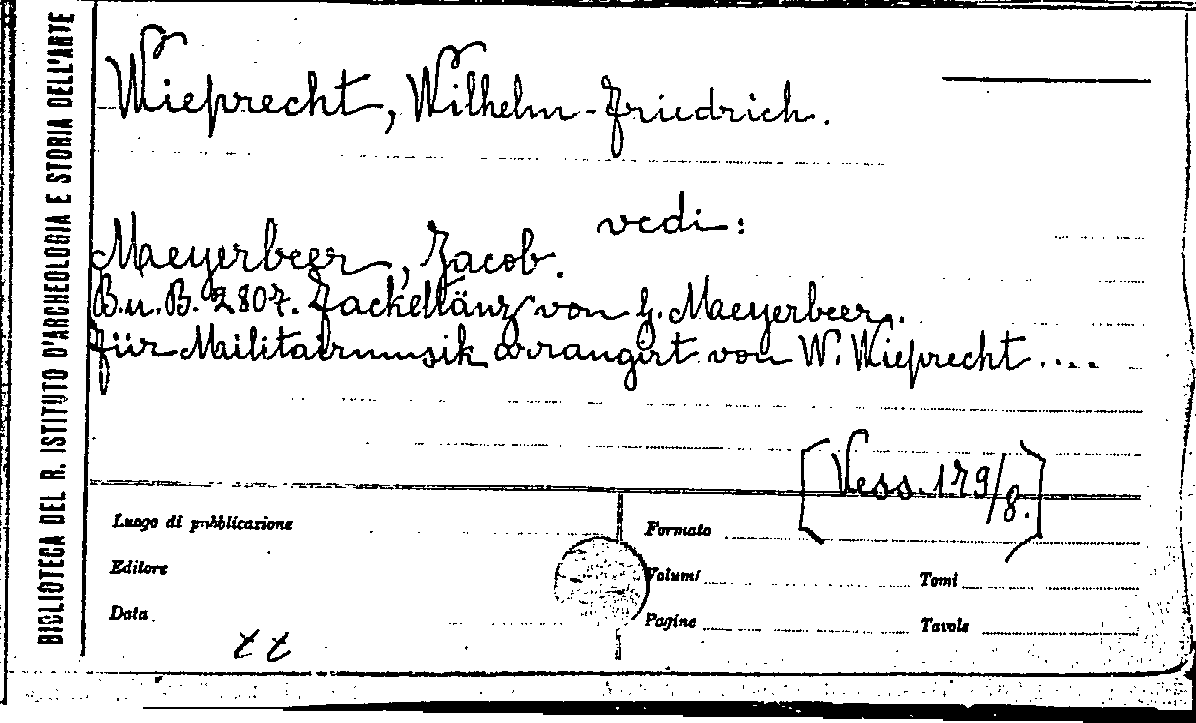 BIBLIOTECA DEL R. ISTITUTO D'ARCHEOLOGIA E STORIA DELL'ARTE
Wieprecht, Wilhelm-Friedrich.
vedi:
Maeyerbeer, Jacob.
B.u.B. 2807. Fackeltänz von G. Maeyerbeer..
für Militairmusik arrangirt von W. Wieprecht ....
[Vess. 179/8.]
Luogo di pubblicazione
Formato
Editore
Volumi
Tomi
Data
Pagine
Tavole
tt